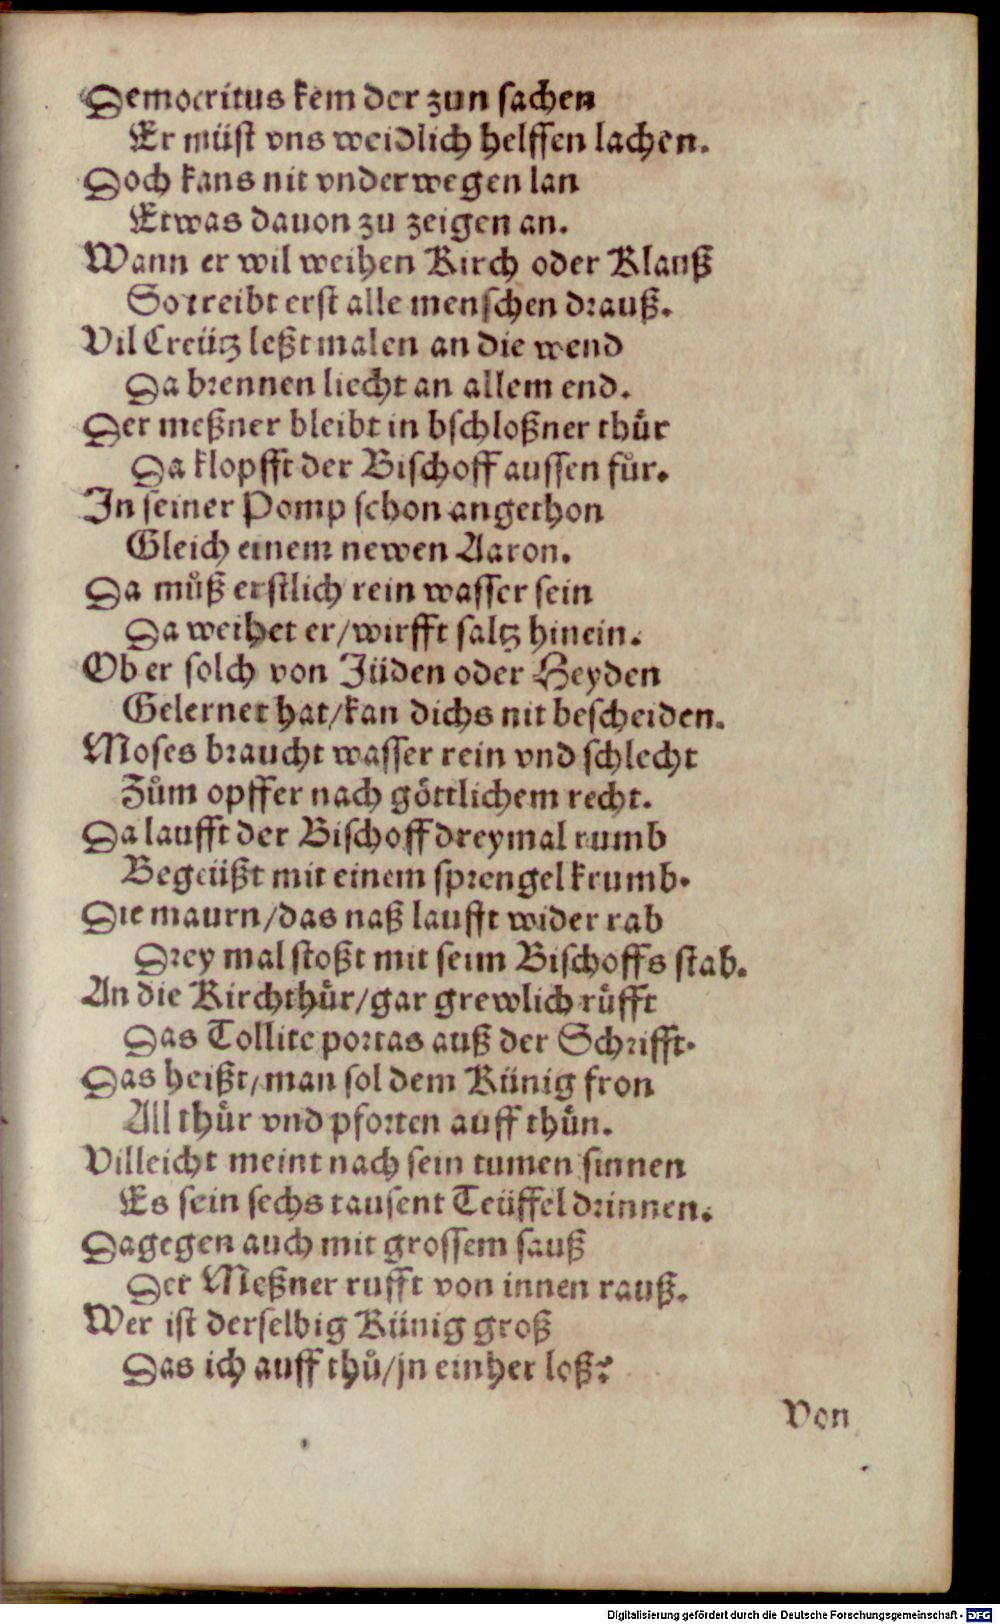 Democritus kem der zun sachen
Er müst vns weidlich helffen lachen.
Doch kans nit vnderwegen lan
Etwas dauon zu zeigen an.
Wann er wil weihen Kirch oder Klauß
So treibt erst alle menschen drauß.
Vil Creütz leßt malen an die wend
Da brennen liecht an allem end.
Der meßner bleibt in bschloßner thůr
Da klopfft der Bischoff aussen fůr.
In seiner Pomp schon angethon
Gleich einem newen Aaron.
Da můß erstlich rein wasser sein
Da weihet er/wirfft saltz hinein.
Ob er solch von Jüden oder Heyden
Gelernet hat/kan dichs nit bescheiden.
Moses braucht wasser rein vnd schlecht
Zům opffer nach göttlichem recht.
Da laufft der Bischoff dreymal rumb
Begeüßt mit einem sprengel krumb.
Die maurn/das naß laufft wider rab
Drey mal stoßt mit seim Bischoffs stab.
An die Kirchthůr/gar grewlich růfft
Das Tollite portas auß der Schrifft.
Das heißt/man sol dem Künig fron
All thůr vnd pforten auff thůn.
Villeicht meint nach sein tumen sinnen
Es sein sechs tausent Teüffel drinnen.
Dagegen auch mit grossem sauß
Der Meßner rufft von innen rauß.
Wer ist derselbig Künig groß
Das ich auff thů/jn einher loß?
Von
Digitalisierung gefördert durch die Deutsche Forschungsgemeinschaft - DFG